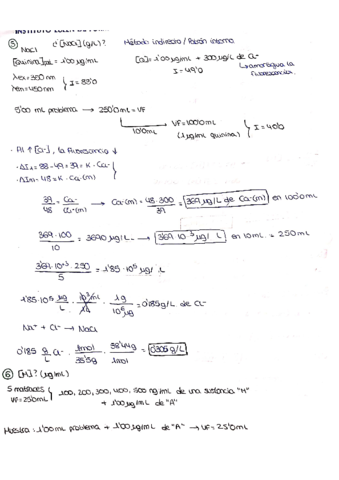 ⑤ NaCl c [NaCl] (g/L)? Método indirecto / Patrón interno
[Quinina]total = 1'00 µg/mL [Q] = 1'00 µg/mL + 300 µg/L de Cl⁻
λex = 350 nm I = 88'0 I = 49'0 ↳ amortigua la fluorescencia
λem = 450 nm
5'00 mL problema → 250'0 mL = VF
10'0 mL → VF = 100'0 mL (1 µg/mL quinina) I = 40'0
• Al ↑ [Cl⁻], la fluorescencia ↓
• ΔI₁ = 88 - 49 = 39 = K · Ca⁻
• ΔIm = 48 = K · Ca⁻(m)
39/48 = Ca⁻/Ca⁻(m) → Ca⁻(m) = 48·300/39 = 369 µg/L de Ca⁻(m) en 100'0 mL
369·100/10 = 3690 µg/L → 369·10⁻³ µg/L en 10 mL = 250 mL
·250/5 = 1'85·10⁵ µg/L
1'85·10⁵ µg/L · 1g/10⁶ µg = 0'185 g/L Cl⁻
Na⁺ + Cl⁻ → NaCl
0'185 g/L Cl⁻ · 1mol/35'5g · 58'44g/1mol = 0'305 g/L
⑥ [H]? (µg/mL)
5 matraces VF = 25'0 mL 100, 200, 300, 400, 500 ng/mL de una sustancia "H"
+ 1'00 µg/mL de "A"
Muestra: 1'00 mL problema + 1'00 µg/mL de "A" → VF = 25'0 mL